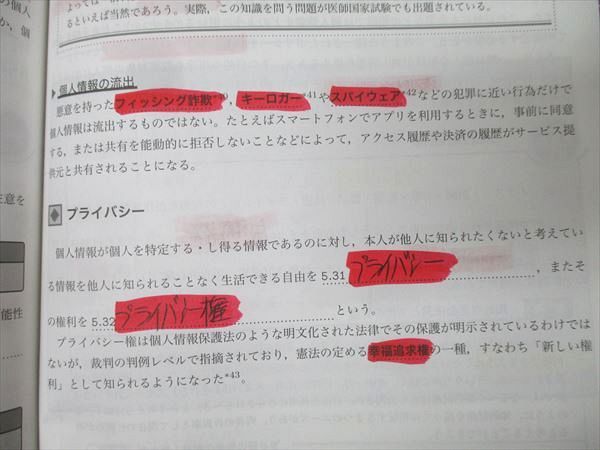 の個人
か，個
るといえば当然であろう．実際，この知識を問う問題が医師国家試験でも出題されている．
▶個人情報の流出
悪意を持ったフィッシング詐欺*40，キーロガー*41やスパイウェア*42などの犯罪に近い行為だけで
個人情報は流出するものではない．たとえばスマートフォンでアプリを利用するときに，事前に同意
する，または共有を能動的に拒否しないことなどによって，アクセス履歴や決済の履歴がサービス提
供元と共有されることになる．
注意を
プライバシー
個人情報が個人を特定する・し得る情報であるのに対し，本人が他人に知られたくないと考えてい
る情報を他人に知られることなく生活できる自由を 5.31 プライバシー，またそ
可能性
の権利を 5.32 プライバシー権という．
プライバシー権は個人情報保護法のような明文化された法律でその保護が明示されているわけでは
ないが，裁判の判例レベルで指摘されており，憲法の定める幸福追求権の一種，すなわち「新しい権
利」として知られるようになった*43．